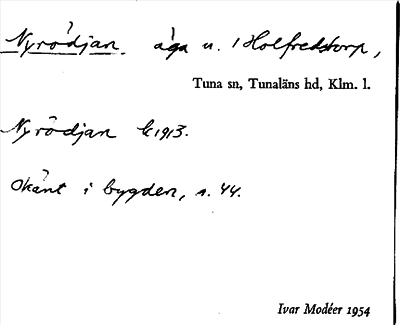 Nyrödjan. äga u. 1 Holfredstorp,
Tuna sn, Tunaläns hd, Klm. l.
Nyrödjan k 1913.
Okänt i bygden, s. 44.
Ivar Modéer 1954